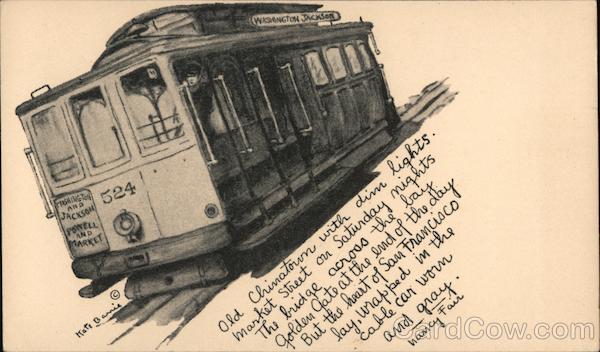 WASHINGTON JACKSON
524
WASHINGTON
AND
JACKSON
POWELL
AND
MARKET
© Kate Barrie
Old Chinatown with dim lights.
Market Street on Saturday nights
The bridge across the bay
Golden Gate at the end of the day
But the heart of San Francisco
lay wrapped in the
cable car worn
and gray.
Mary Fair
CardCow.com